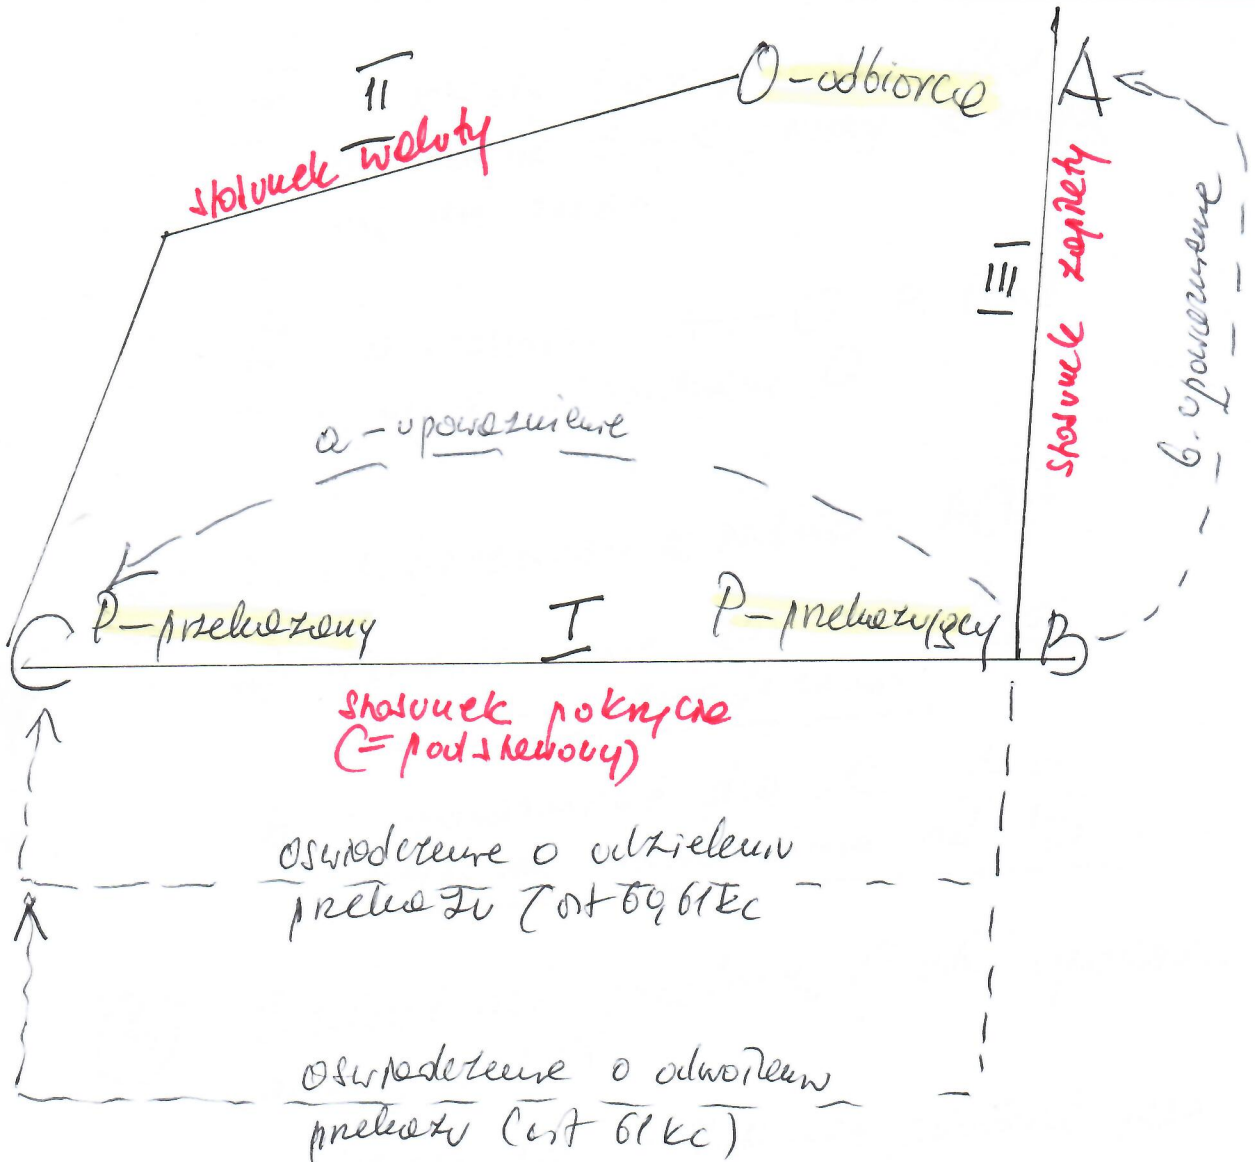 II
stosunek waluty
O-odbiorca
A
III
stosunek zapłaty
b. upoważnienie
a-upoważnienie
C
P-przekazany
I
P-przekazujący
B
stosunek pokrycia
(=podstawowy)
oświadczenie o udzieleniu
przekazu (art 60, 61 kc
oświadczenie o odwołaniu
przekazu (art 61 kc)